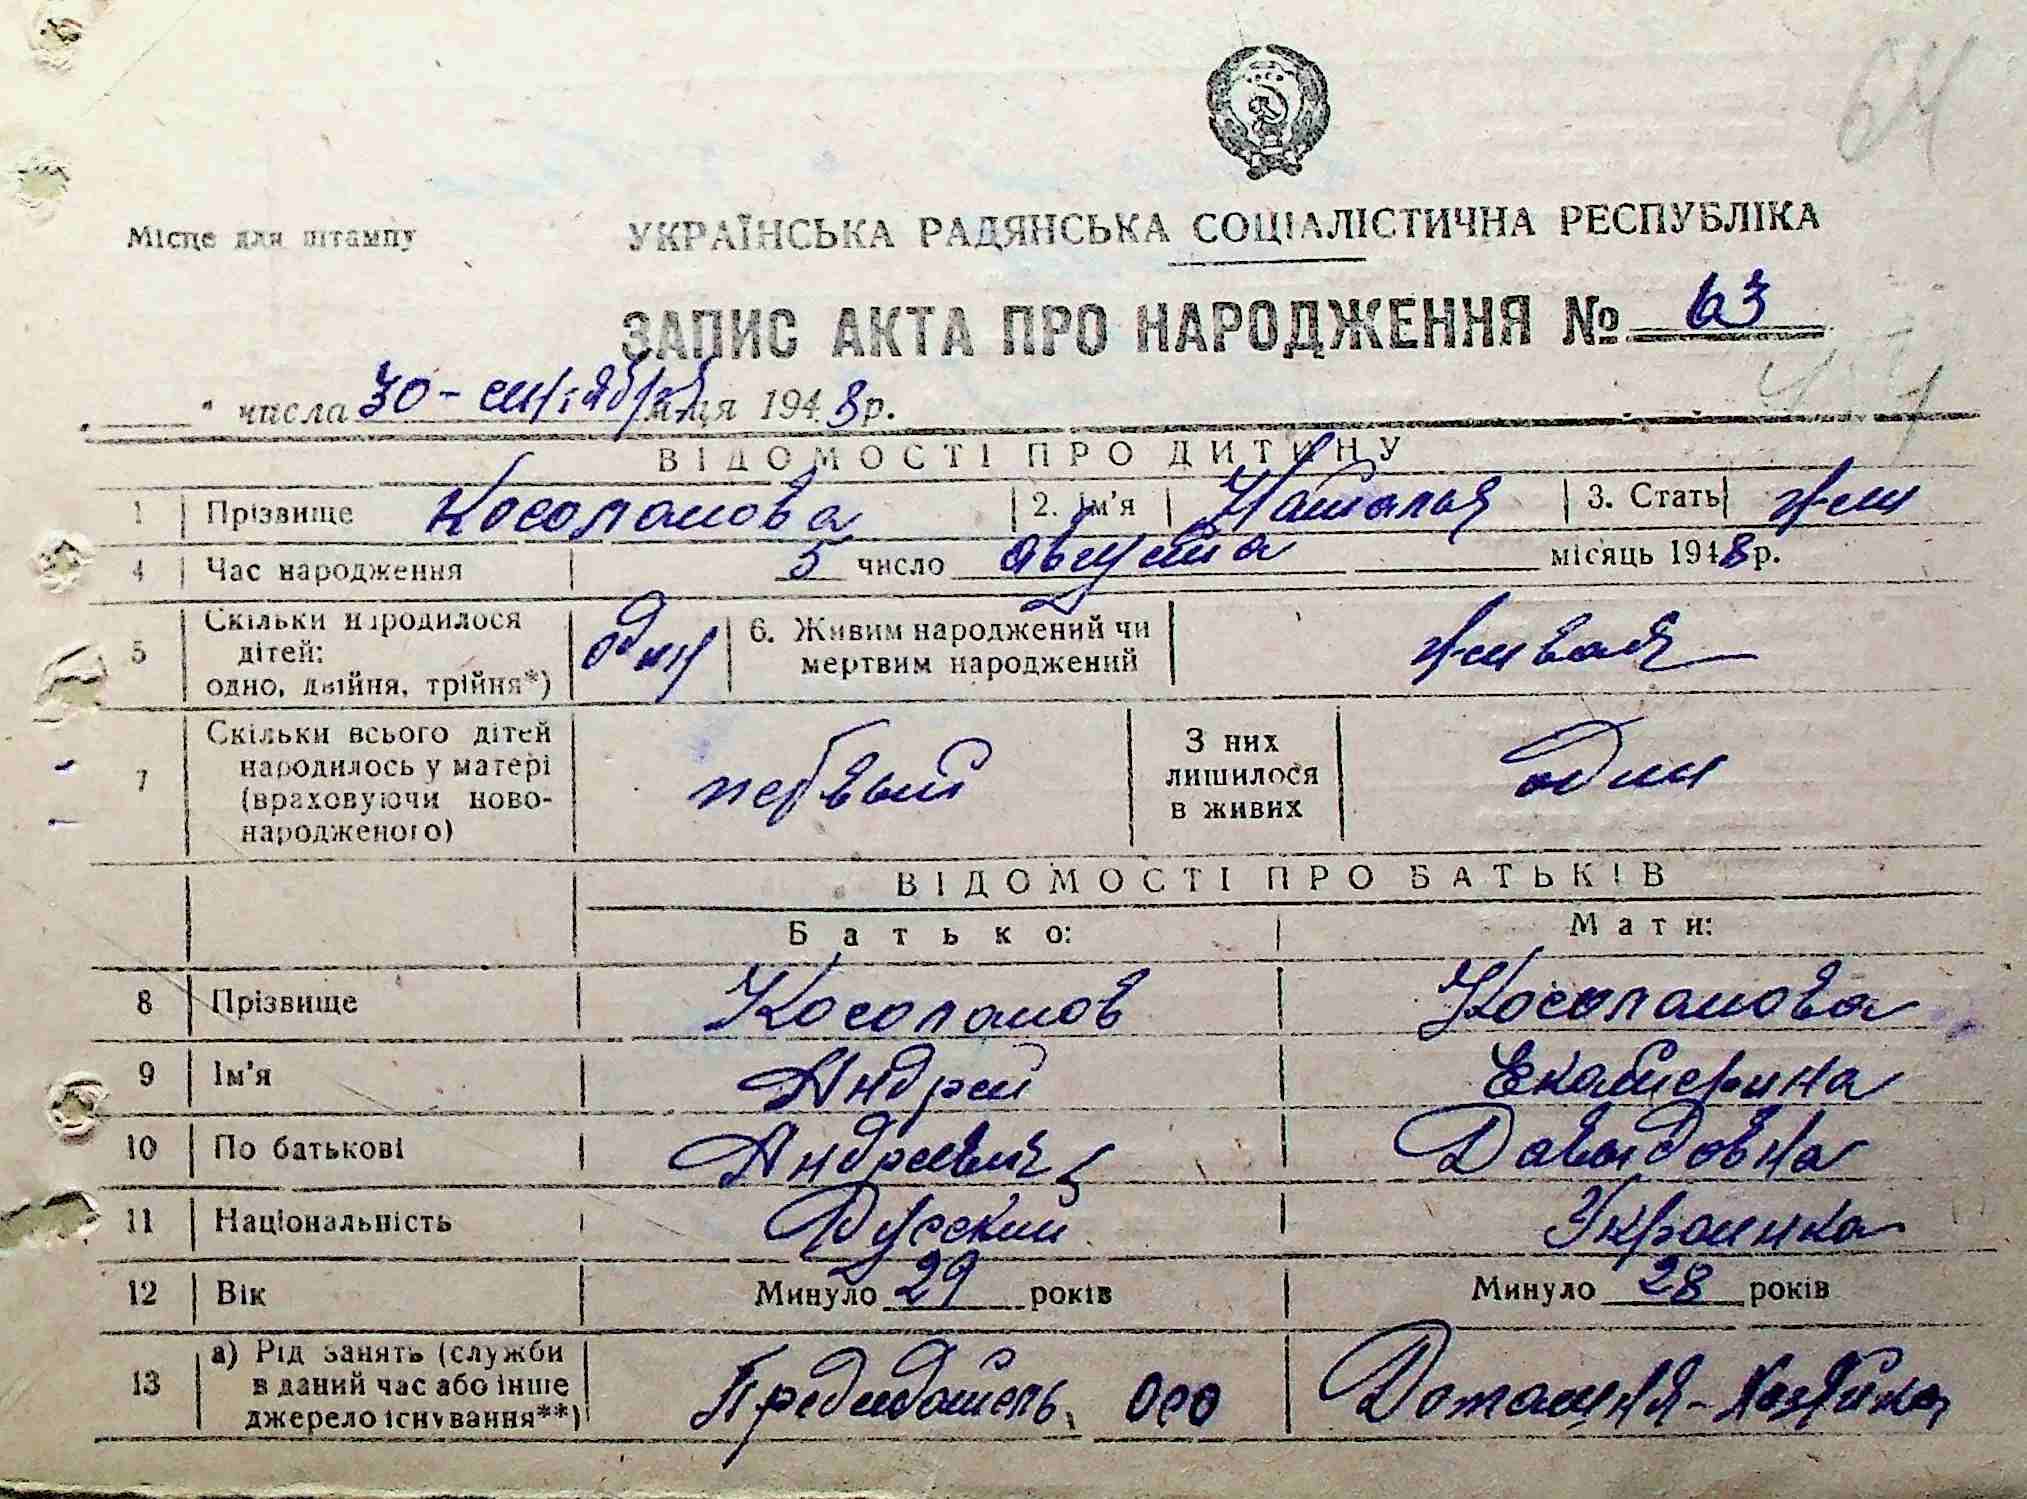 64
Місце для штампу
УКРАЇНСЬКА РАДЯНСЬКА СОЦІАЛІСТИЧНА РЕСПУБЛІКА
ЗАПИС АКТА ПРО НАРОДЖЕННЯ № 63
" числа 30 - сентября м-ця 1948 р.
ВІДОМОСТІ ПРО ДИТИНУ
1 Прізвище Косолапова 2. Ім'я Наталья 3. Стать жен
4 Час народження 5 число августа місяць 1948 р.
5 Скільки народилося дітей: одно, двійня, трійня*) один 6. Живим народжений чи мертвим народжений живая
7 Скільки всього дітей народилось у матері (враховуючи новонародженого) первый З них лишилося в живих один
ВІДОМОСТІ ПРО БАТЬКІВ
Батько: Мати:
8 Прізвище Косолапов Косолапова
9 Ім'я Андрей Екатерина
10 По батькові Андреевич Давыдовна
11 Національність Русский Украинка
12 Вік Минуло 29 років Минуло 28 років
13 а) Рід занять (служби в даний час або інше джерело існування**) Председатель, Домашня-хозяйка